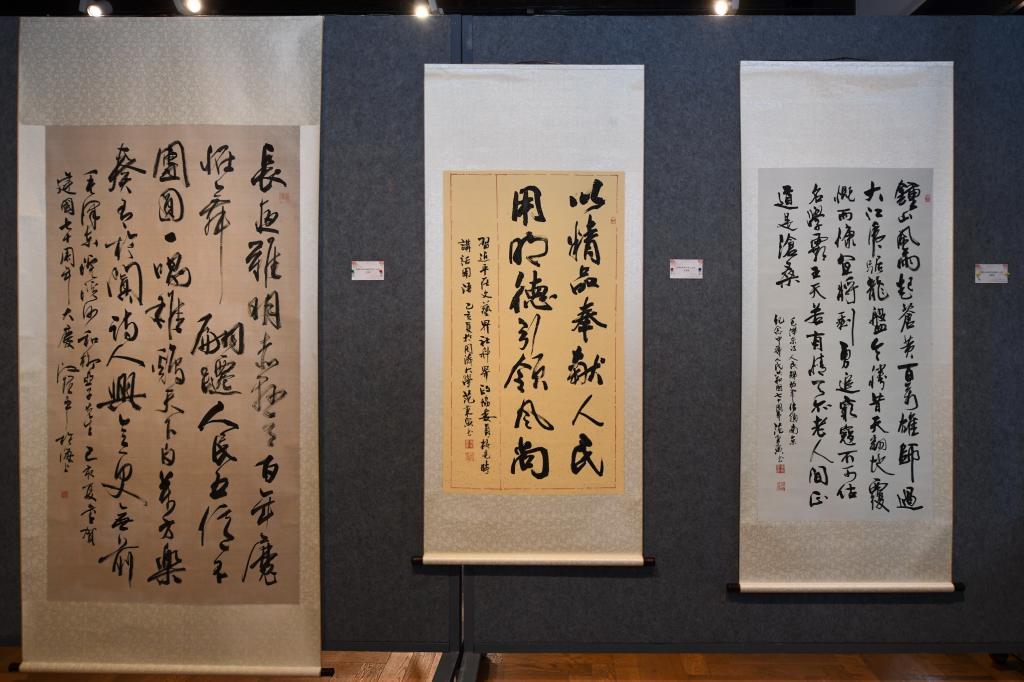 長夜難明赤縣天百年魔
恠舞翩躚人民五億不
團圓一唱雄鷄天下白萬方樂
奏有於闐詩人興會更無前
毛澤東浣溪沙和柳亞子先生 己亥夏書賀
建國七十周年大慶 於滬上
以精品奉獻人民
用明德引領風尚
習近平在文藝界社科界政協委員時
講話用語 己亥夏於同濟大學 范書
鍾山風雨起蒼黃百萬雄師過
大江虎踞龍盤今勝昔天翻地覆
慨而慷宜將剩勇追窮寇不可沽
名學霸王天若有情天亦老人間正
道是滄桑
毛澤東詩人民解放軍佔領南京
紀念中華人民共和國七十周年 范書